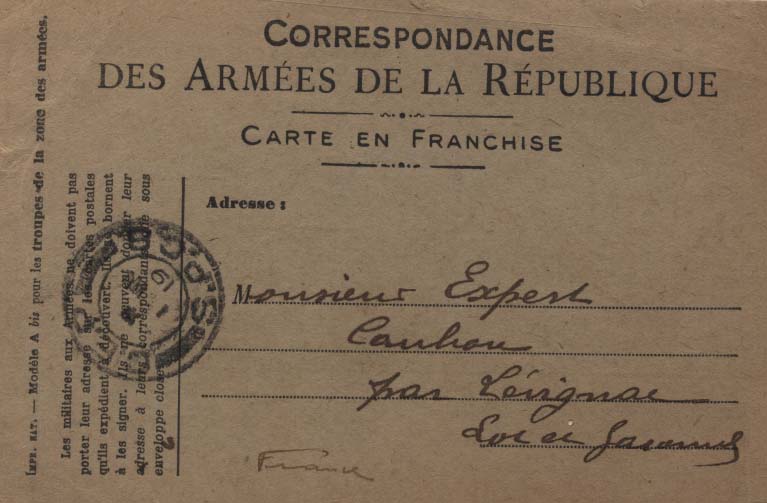 CORRESPONDANCE
DES ARMÉES DE LA RÉPUBLIQUE
CARTE EN FRANCHISE
Adresse :
Monsieur Expert
Caubon
par Lévignac
Lot et Garonne
France
IMPR. NAT. — Modèle A bis pour les troupes de la zone des armées.
Les militaires aux Armées ne doivent pas
porter leur adresse sur les cartes postales
qu'ils expédient à découvert. Ils se bornent
à les signer. Ils ne peuvent donner leur
adresse à leurs correspondants que sous
enveloppe close.